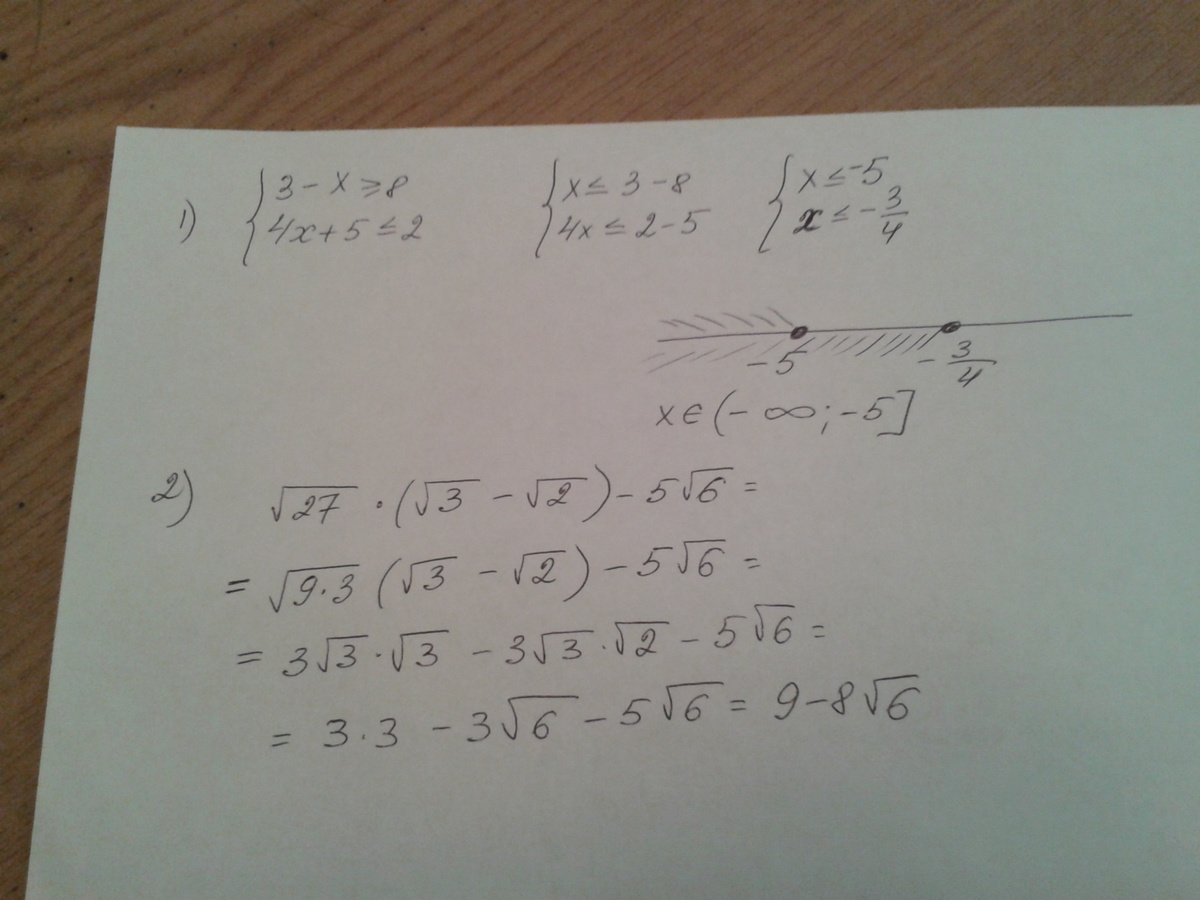 1) { 3 - x ≥ 8 { x ≤ 3 - 8 { x ≤ -5
4x + 5 ≤ 2 4x ≤ 2 - 5 x ≤ - 3/4
-5 - 3/4
x ∈ (- ∞; -5]
2) √27 · (√3 - √2) - 5√6 =
= √9·3 (√3 - √2) - 5√6 =
= 3√3 · √3 - 3√3 · √2 - 5√6 =
= 3·3 - 3√6 - 5√6 = 9 - 8√6